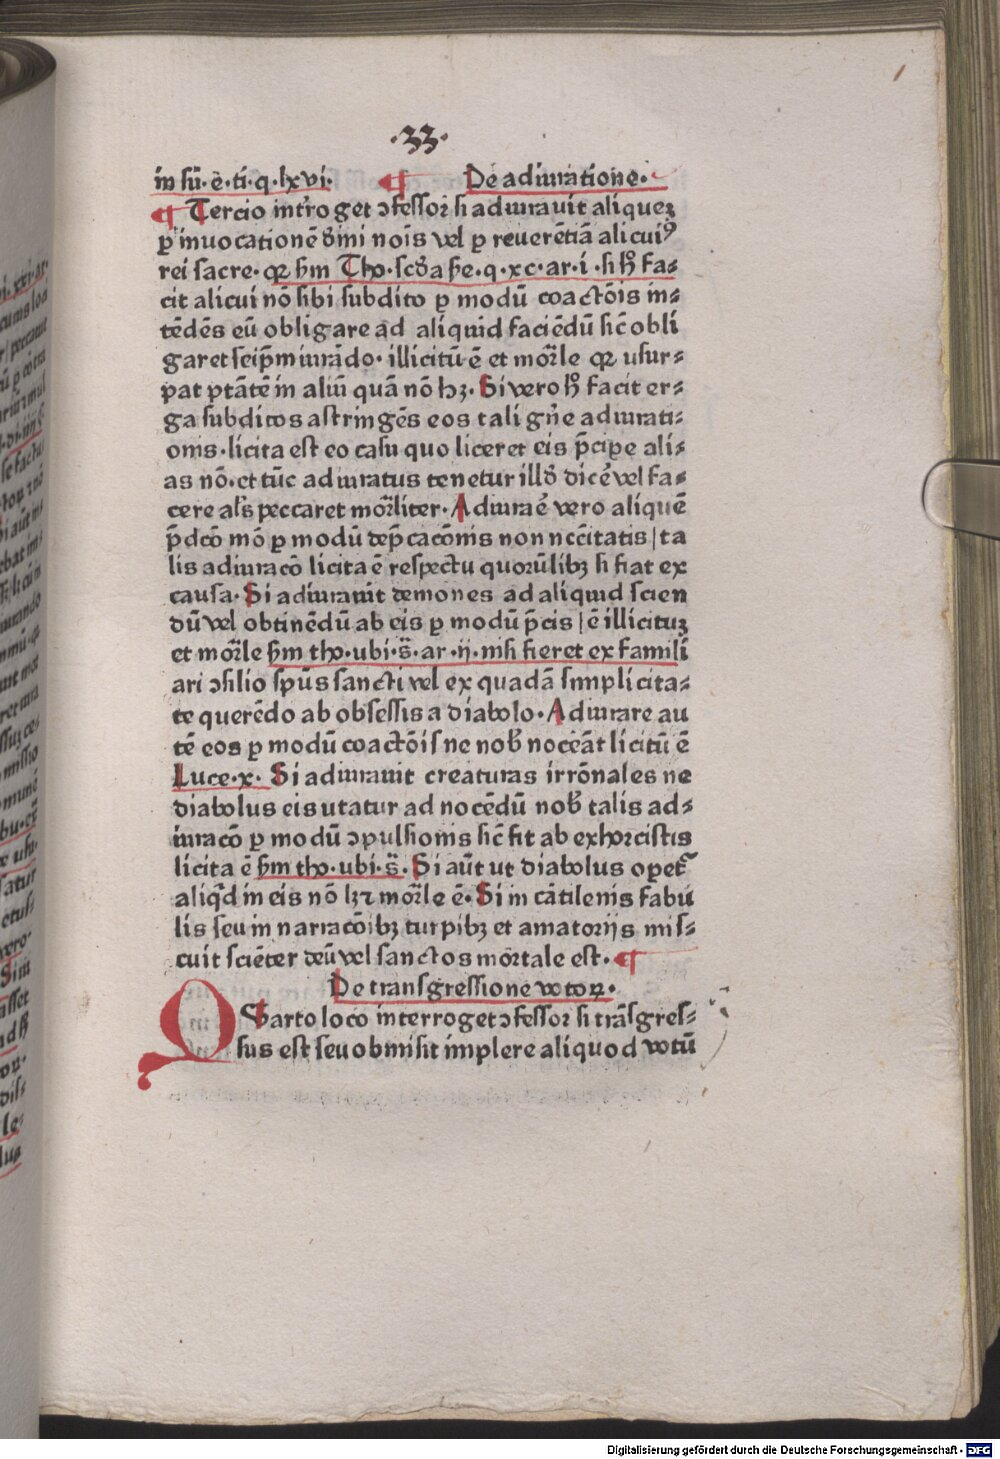 ·33·
in sū·e·ti·q·lxvi· ¶ De adiuratione·
¶ Tercio intrͦget ↄfessor si adiurauit aliqueꝫ
ꝑ inuocationē dīni noīs vel ꝑ reuerētiā alicuiꝰ
rei sacre· qꝛ sm̄ Tho·scḋa sēe·q·xc·ar·i·si hͦ fa⸗
cit alicui nō sibi subdito ꝑ modū coactōis in⸗
tēdēs eū obligare ad aliquid faciēdū sic̄ obli
garet seip̄m iurādo· illicitū ē et mor̄le qꝛ usur⸗
pat ptātē in aliū quā nō hꝫ· Si vero hͦ facit er⸗
ga subditos astringēs eos tali gn̄e adiurati⸗
onis·licita est eo casu quo liceret eis p̄cipe ali⸗
as nō·et tūc adiuratus tenetur illḋ dicē vel fa⸗
cere al̄s peccaret mor̄liter· Adiurar̄e vero aliquē
p̄dcō mō ꝑ modū dep̄cacōnis non nccītatis|ta
lis adiuracō licita ē respectu quorūlibꝫ si fiat ex
causa· Si adiurauit demones ad aliquid scien
dū vel obtinēdū ab eis ꝑ modū p̄cis|ē illicituꝫ
et mor̄le sm̄ tho·ubi·s̄·ar·ij·nisi fieret ex famili
ari ↄsilio spūs sancti vel ex quadā simplicita⸗
te querēdo ab obsessis a diabolo· Adiurare au
tē eos ꝑ modū coactōis ne nob̄ noceāt licitū ē
Luce·x· Si adiurauit creaturas irrōnales ne
diabolus eis utatur ad nocēdū nob̄ talis ad⸗
iuracō ꝑ modū ↄpulsionis sic̄ fit ab exhorcistis
licita ē sm̄ tho·ubi·s̄· Si aūt ut diabolus opet̄
aliqd̄ in eis nō lꝫ ⁊ mor̄le ē· Si in cātilenis fabu
lis seu in narracōibꝫ turpibꝫ et amatorijs mis⸗
cuit sciēter deū vel sanctos mōrtale est· ¶
De transgressione votoꝝ·
Quarto loco interroget ↄfessor si trāsgres⸗
sus est seu obmisit implere aliquod votū
Digitalisierung gefördert durch die Deutsche Forschungsgemeinschaft - DFG